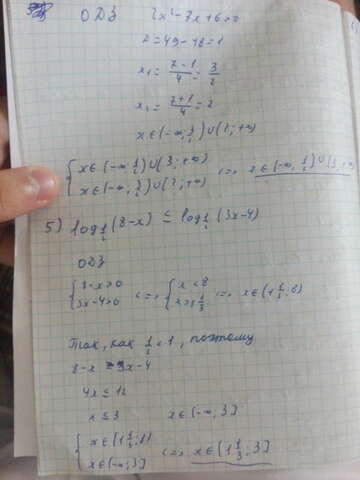 ОДЗ 2x²-7x+6>0
D=49-48=1
x₁=(7-1)/4=3/2
x₂=(7+1)/4=2
x∈(-∞;3/2)∪(2;+∞)
{x∈(-∞;1/2)∪(3;+∞)
{x∈(-∞;3/2)∪(2;+∞) <=> x∈(-∞;1/2)∪(3;+∞)
5) log½(8-x) ≤ log½(3x-4)
ОДЗ
{8-x>0
{3x-4>0 <=> {x<8 {x>1⅓ <=> x∈(1⅓;8)
Так, как ½<1, поэтому
8-x ≥ 3x-4
4x≤12
x≤3 x∈(-∞;3]
{x∈(1⅓;8)
{x∈(-∞;3] <=> x∈(1⅓;3]